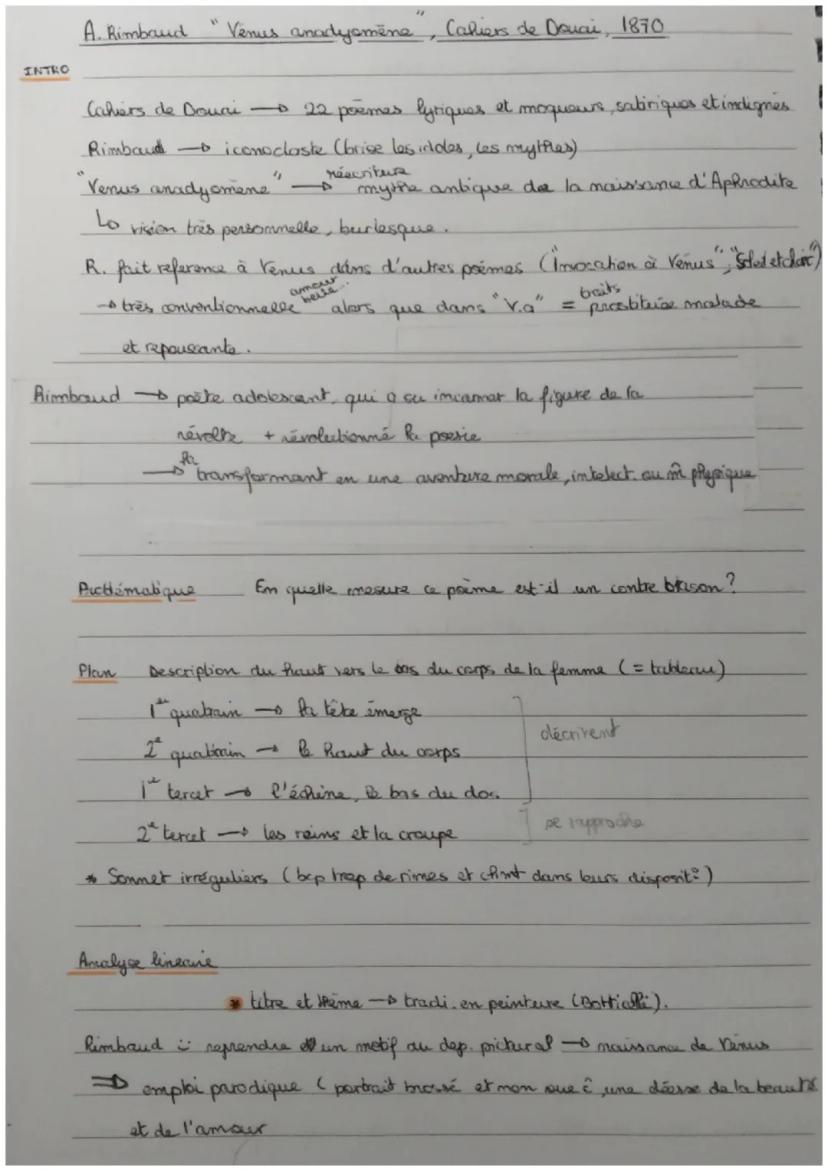 A. Rimbaud "Vénus anadyomène", Cahiers de Douai, 1870
INTRO
Cahiers de Douai → 22 poèmes lyriques et moqueurs, satiriques et indignés
Rimbaud → iconoclaste (brise les idoles, les mythes)
"Venus anadyomène" → réecriture mythe antique de la naissance d'Aphrodite
↳ vision très personnelle, burlesque.
R. fait reference à Venus dans d'autres poèmes ("Invocation à Vénus", "Soleil et chair")
→ très conventionnelle amour beauté... alors que dans "V.a" = traits prostituée malade
et repoussante.
Rimbaud → poète adolescent, qui a su incarner la figure de la
révolte + révolutionné la poesie
→ la transformant en une aventure morale, intelect. ou m̂ physique
Problématique En quelle mesure ce poème est-il un contre blason?
Plan Description du haut vers le bas du corps de la femme (= tableau)
1er quatrain → la tête émerge
2e quatrain → le haut du corps
décrivent
1er tercet → l'échine, le bas du dos.
2e tercet → les reins et la croupe
se rapproche
* Sonnet irréguliers (bcp trop de rimes et chgmt dans leurs disposit°)
Analyse linéaire
* titre et thème → tradi. en peinture (Botticelli).
Rimbaud : reprendre un motif au dep. pictural → naissance de Vénus
⇒ emploi parodique (portrait brossé et mon que ĉ, une déesse de la beauté
et de l'amour